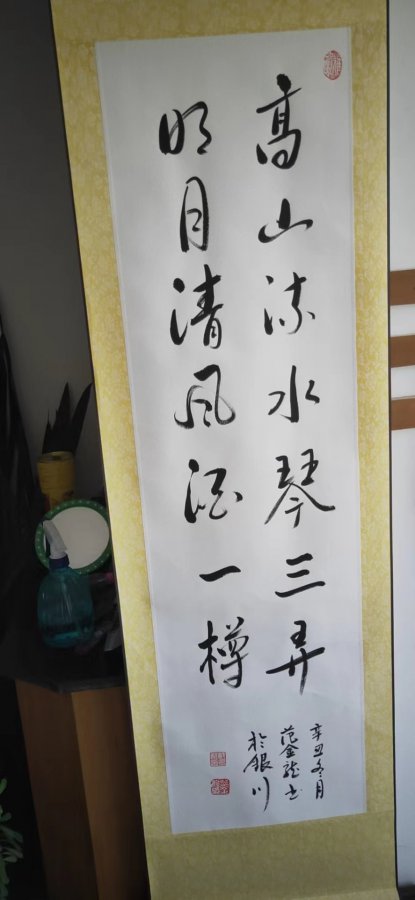 高山流水琴三弄
明月清风酒一樽
辛丑冬月
范金龙书
於银川